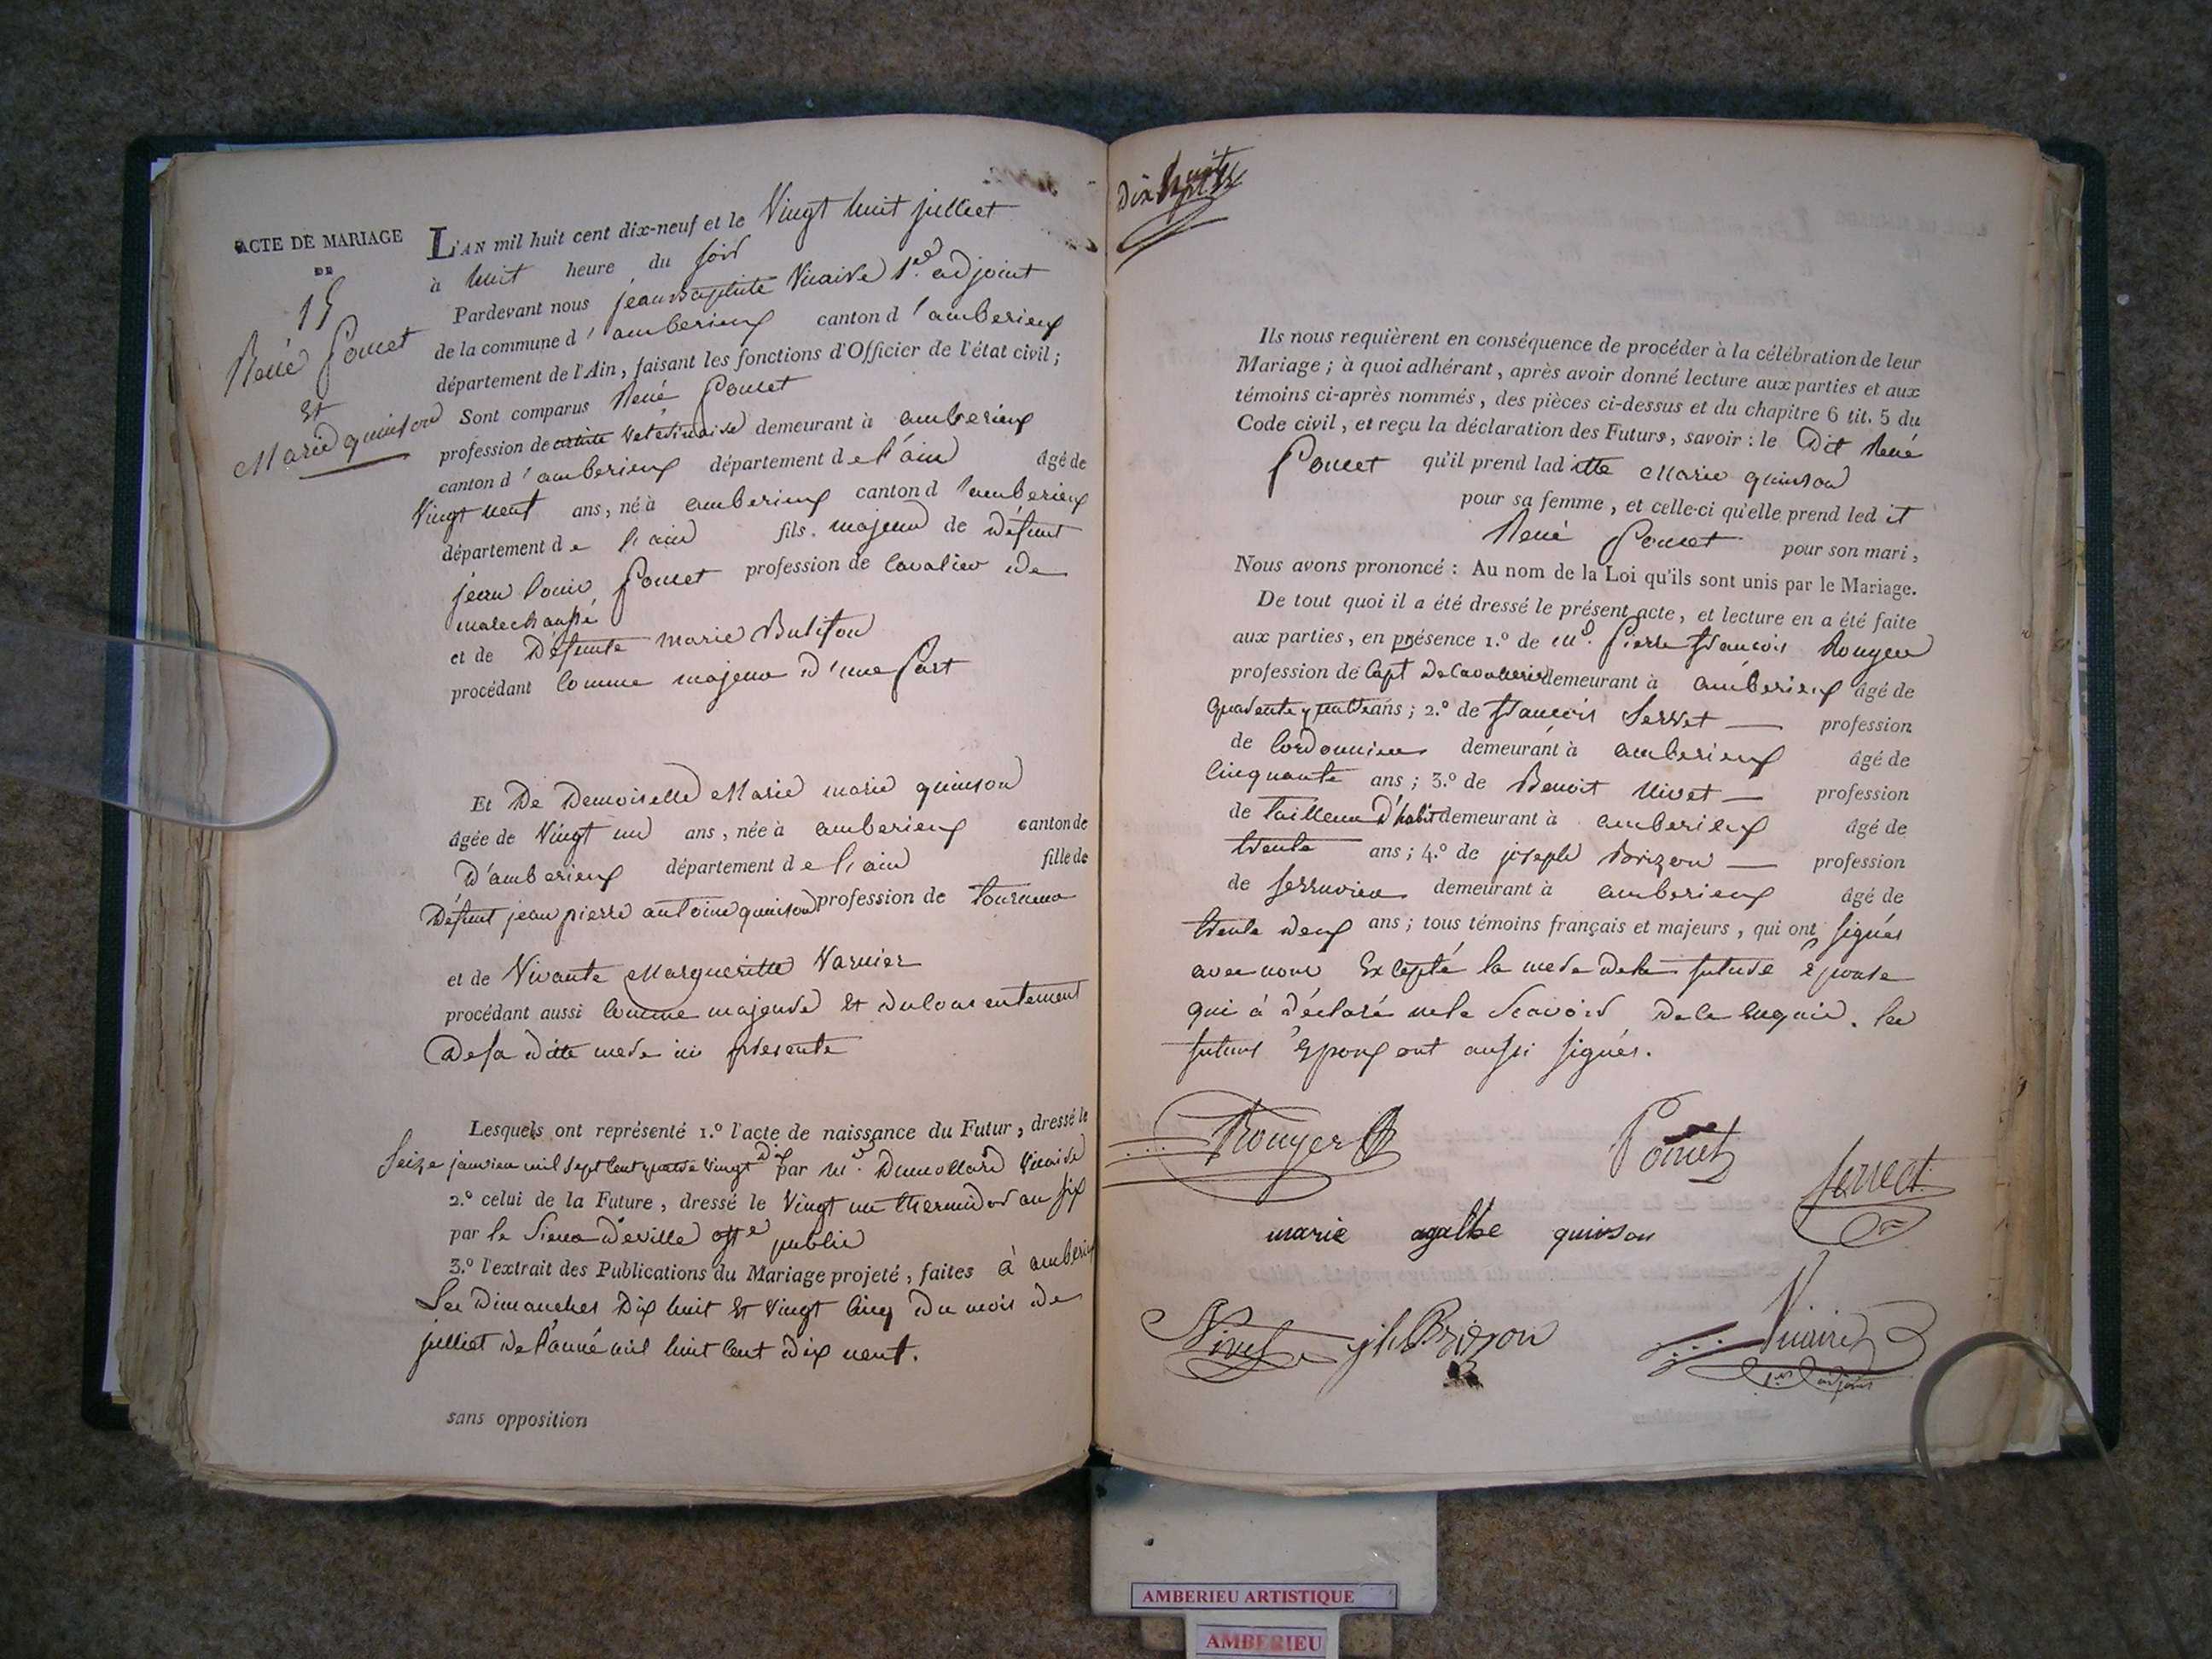 ACTE DE MARIAGE
DE
15
René Poncet
Et
Marie quinson
L'AN mil huit cent dix-neuf et le Vingt huit juilliet
à huit heure du soir
Pardevant nous jean Baptiste Vicaire 1.er adjoint
de la commune d'amberieux canton d'amberieux
département de l'Ain, faisant les fonctions d'Officier de l'état civil;
Sont comparus René Poncet
profession de artiste Veterinaire demeurant à amberieux
canton d'amberieux département de l'ain âgé de
Vingt neuf ans, né à amberieux canton d'amberieux
département de l'ain fils majeur de Défunt
jean louis Poncet profession de Cavalier de
marechaussé
et de Défunte marie
procédant Comme majeur d'une Part
Et De Demoiselle Marie marie quinson
âgée de Vingt un ans, née à amberieux canton de
D'amberieux département de l'ain fille de
Défunt jean pierre antoine quinson profession de tourneur
et de Vivante Margueritte Varnier
procédant aussi Comme majeure Et du Consentement
De sa ditte mere ici présente
Lesquels ont représenté 1.º l'acte de naissance du Futur, dressé le
Seize janvier mil sept Cent quatre Vingt Dix par mr. Dumollard Vicaire
2.º celui de la Future, dressé le Vingt un thermidor an six
par le Sieur Deville offe public
3.º l'extrait des Publications du Mariage projeté, faites à amberieux
Les Dimanches Dix huit Et Vingt Cinq Du mois de
juilliet De l'anné mil huit Cent Dix neuf.
sans opposition
Dix huit
Ils nous requièrent en conséquence de procéder à la célébration de leur
Mariage; à quoi adhérant, après avoir donné lecture aux parties et aux
témoins ci-après nommés, des pièces ci-dessus et du chapitre 6 tit. 5 du
Code civil, et reçu la déclaration des Futurs, savoir: le Dit René
Poncet qu'il prend laditte Marie quinson
pour sa femme, et celle-ci qu'elle prend ledit
René Poncet pour son mari,
Nous avons prononcé: Au nom de la Loi qu'ils sont unis par le Mariage.
De tout quoi il a été dressé le présent acte, et lecture en a été faite
aux parties, en présence 1.º de mr. Pierre francois Rouyer
profession de Capt De Cavallerie demeurant à amberieux âgé de
quarente quatre ans; 2.º de francois Servet profession
de Cordonnier demeurant à amberieux âgé de
Cinquante ans; 3.º de Benoit Nivet profession
de tailleur D'habit demeurant à amberieux âgé de
trente ans; 4.º de joseph Brizon profession
de serrurier demeurant à amberieux âgé de
trente deux ans; tous témoins français et majeurs, qui ont signés
avec nous Excepté la mere de la future Epouse
qui à déclaré ne le Scavoir De ce Enquis. les
futurs Epoux ont aussi signés.
Rouyer Poncet
Servet
marie agathe quinson
Nivet jh Brizon Vicaire
1er adjoint
AMBERIEU ARTISTIQUE
AMBERIEU